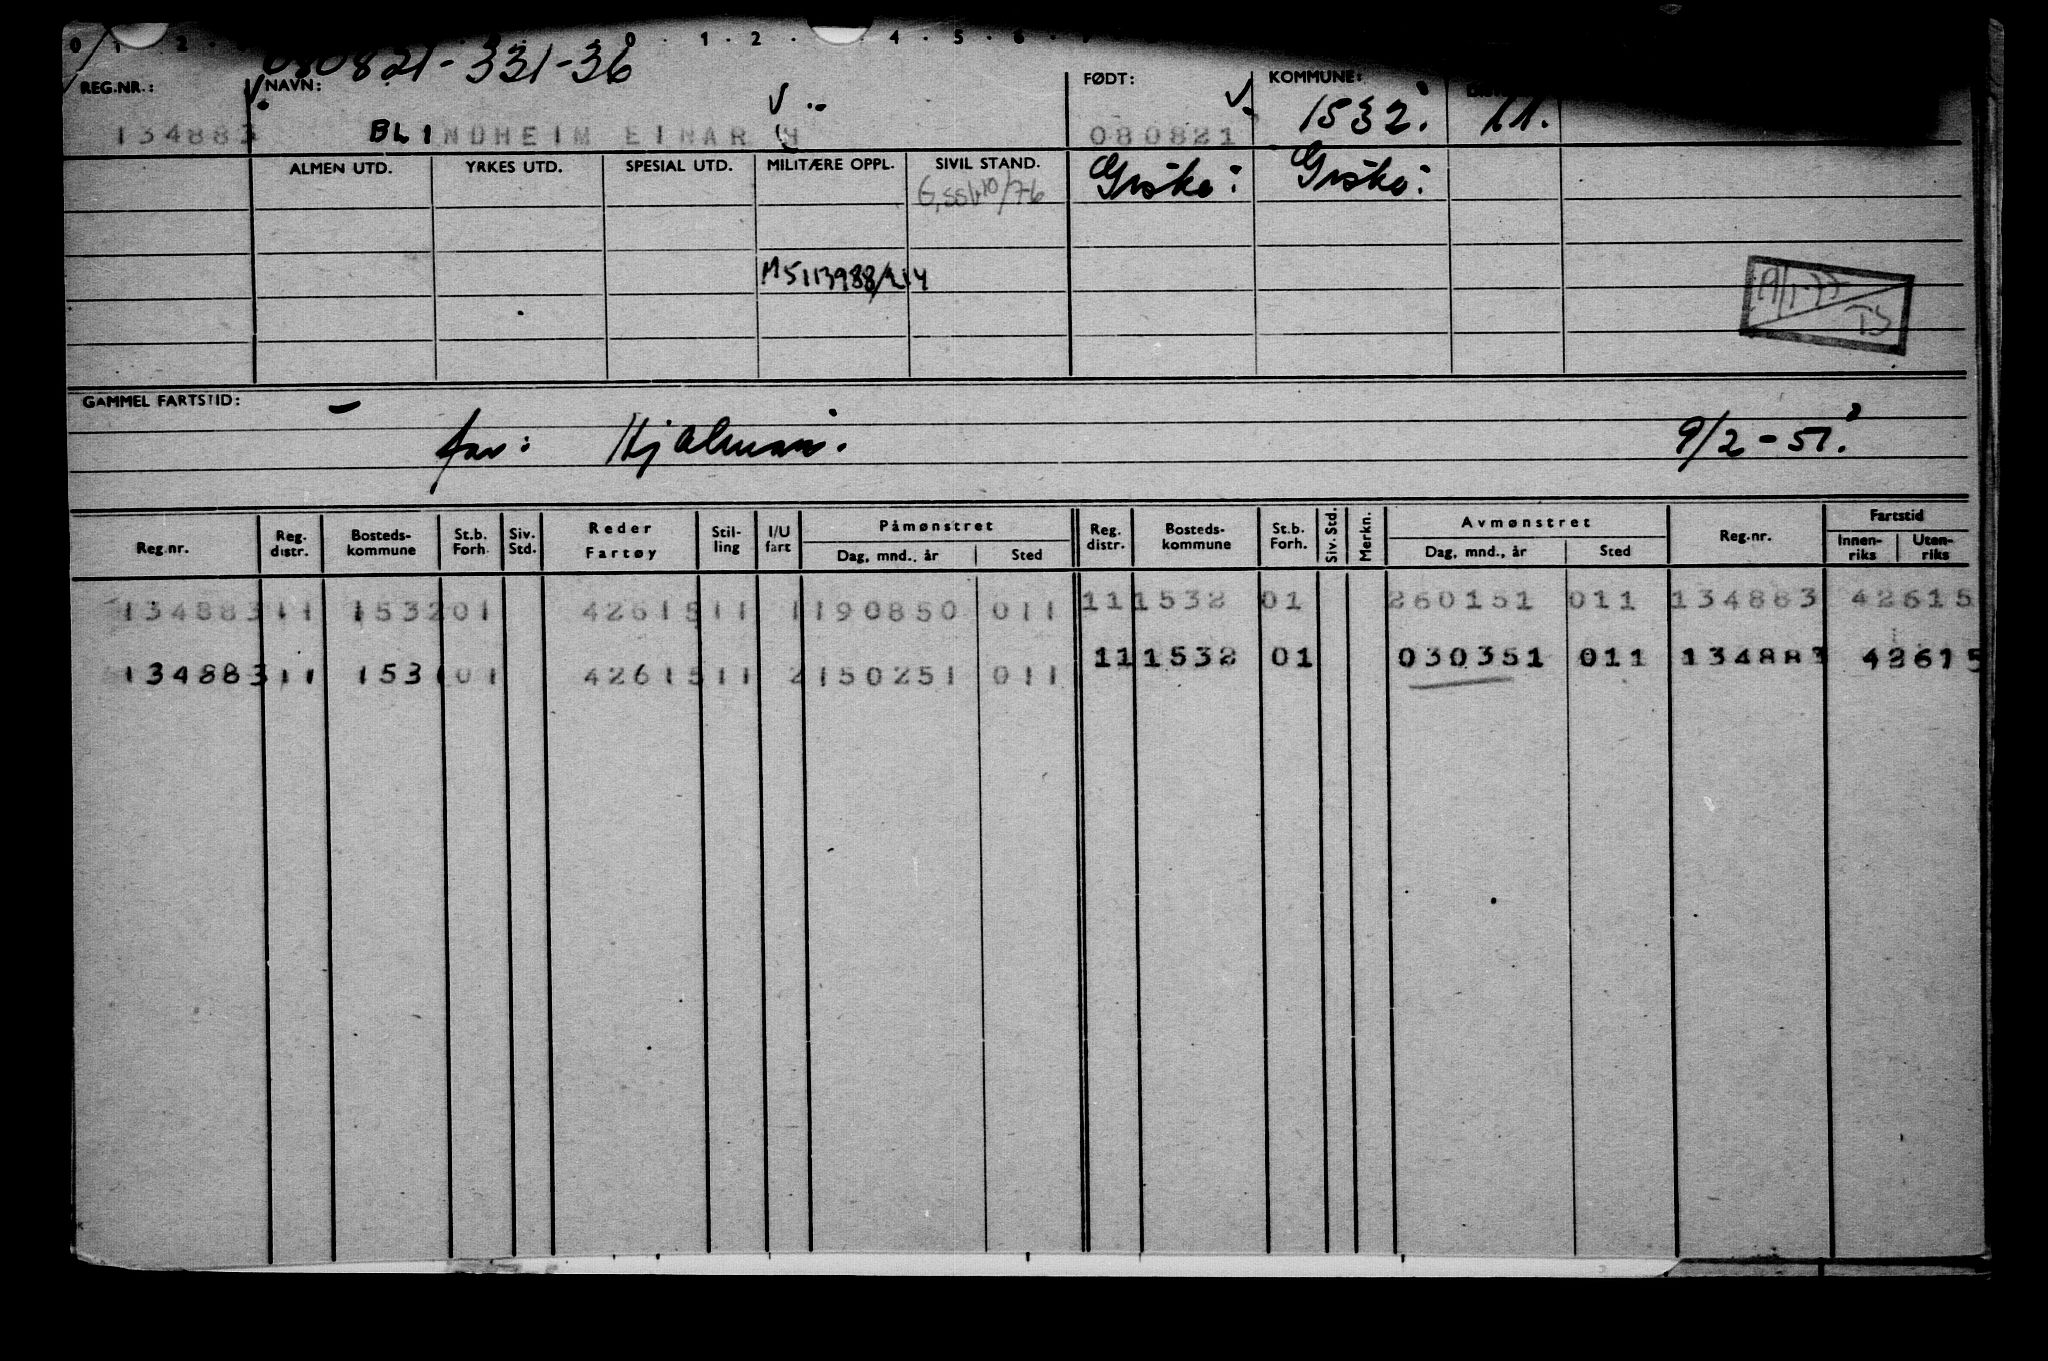 0 1 . 2 . 0 . 1 . 2 . 4 . 5 . 6 .
080821-331-36
REG.NR.: NAVN: FØDT: KOMMUNE:
134883 BLINDHEIM EINAR H 080821 1532. 11.
ALMEN UTD. YRKES UTD. SPESIAL UTD. MILITÆRE OPPL. SIVIL STAND. Giske: Giske:
M5113988/214
TS
GAMMEL FARTSTID: –
far: Hjalmar. 9/2-51.
Reg.nr. Reg. distr. Bosteds-kommune St.b. Forh. Siv. Std. Reder Fartøy Stil-ling I/U fart Påmønstret Dag, mnd., år Sted Reg. distr. Bosteds-kommune St.b. Forh. Siv. Std. Merkn. Avmønstret Dag, mnd., år Sted Reg.nr. Fartstid Innen-riks Uten-riks
134883 11 1532 01 42615 11 1 190850 011 11 1532 01 260151 011 134883 42615
134883 11 153 01 42615 11 2 150251 011 11 1532 01 030351 011 134883 42615